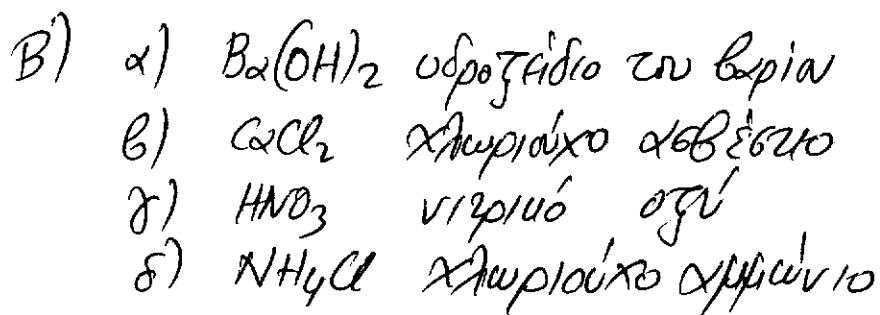 Β) α) Ba(OH)₂ υδροξείδιο του βαρίου
β) CaCl₂ χλωριούχο ασβέστιο
γ) HNO₃ νιτρικό οξύ
δ) NH₄Cl χλωριούχο αμμώνιο